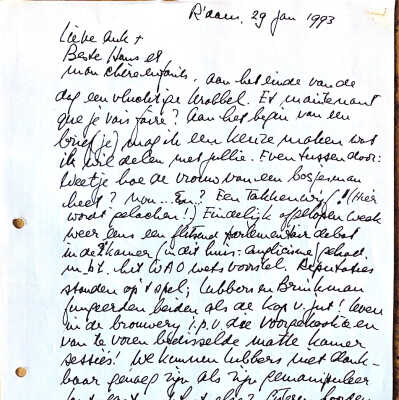 R'dam, 29 jan 1993
Lieve Ank +
Beste Hans et
mon chère enfants, aan het einde van de
dag een vluchtige krabbel. Et maintenant
que je vais faire? Aan het begin van een
brief(je) mag ik een keuze maken wat
ik wil delen met jullie. Even tussendoor:
weet je hoe de vrouw van een bosjesman
heet? Nou... En? Een Takkenwijf! (Hier
wordt gelachen!) Eindelijk afgelopen week
weer eens een flitsend parlementair debat
in de kamer (in dit huis: anglicisme) gehad.
m.b.t. het WAO wetsvoorstel. Reputaties
stonden op 't spel; Lubbers en Brinkman
fungeerden beiden als de kop v. jut! Leven
in de brouwerij i.p.v. die voorgekookte en
van te voren bedisselde matte kamer
sessies! We kunnen Lubbers niet dank-
baar genoeg zijn als zijn gemanipuleer